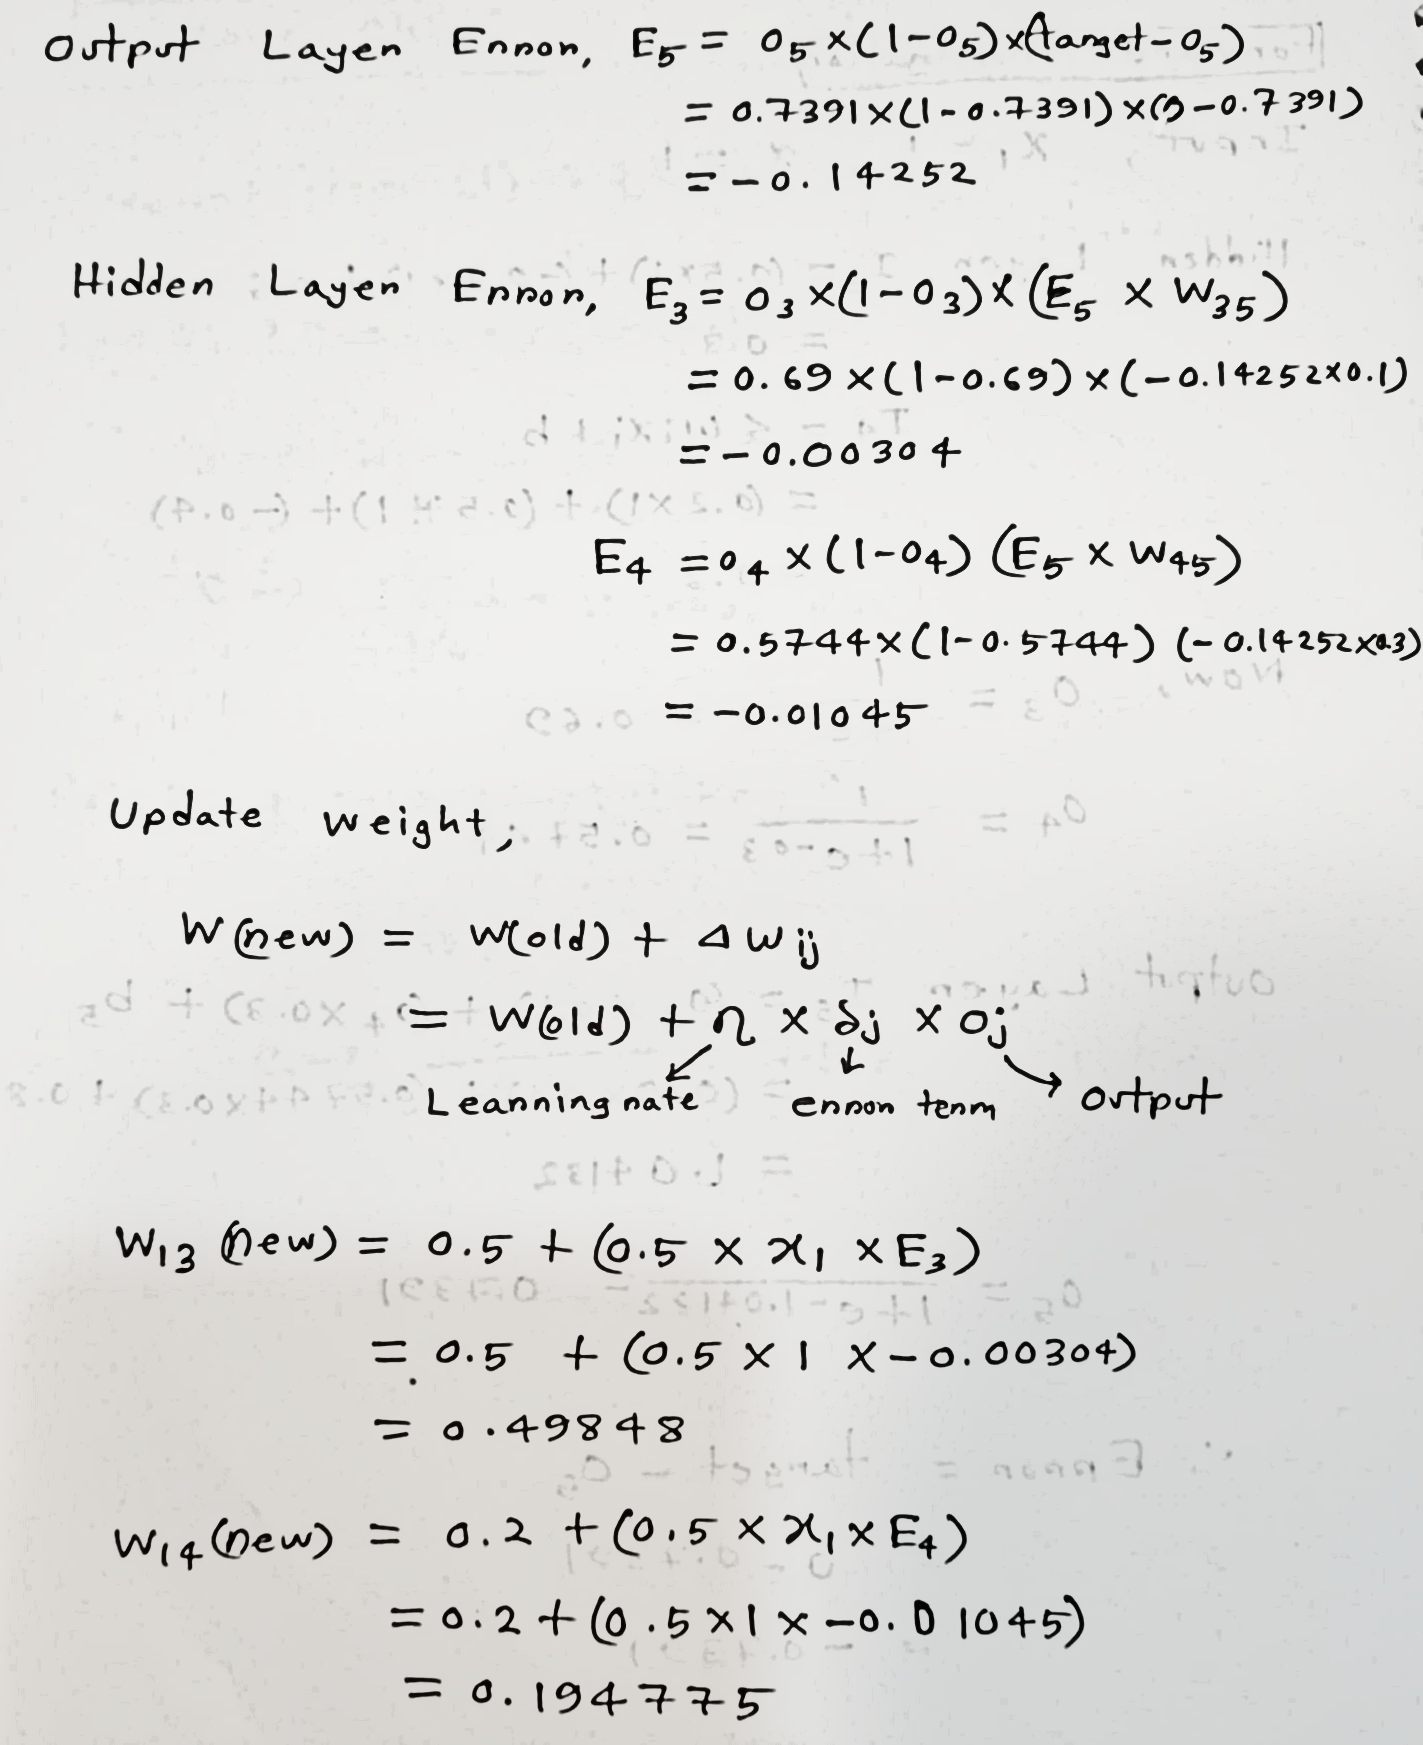 Output Layer Error, E5 = O5 ×(1-O5)×(target-O5)
= 0.7391×(1-0.7391)×(0-0.7391)
= -0.14252
Hidden Layer Error, E3 = O3 ×(1-O3)× (E5 × W35)
= 0.69 ×(1-0.69) ×(-0.14252×0.1)
= -0.00304
E4 = O4 ×(1-O4) (E5 × W45)
= 0.5744×(1-0.5744) (-0.14252×0.3)
= -0.01045
Update weight,
W(new) = W(old) + ΔWij
= W(old) + η × δj × Oj
Learning rate error term Output
W13 (new) = 0.5 + (0.5 × x1 × E3)
= 0.5 + (0.5 × 1 × -0.00304)
= 0.49848
W14(new) = 0.2 + (0.5 × x1 × E4)
= 0.2 + (0.5 ×1 × -0.01045)
= 0.194775